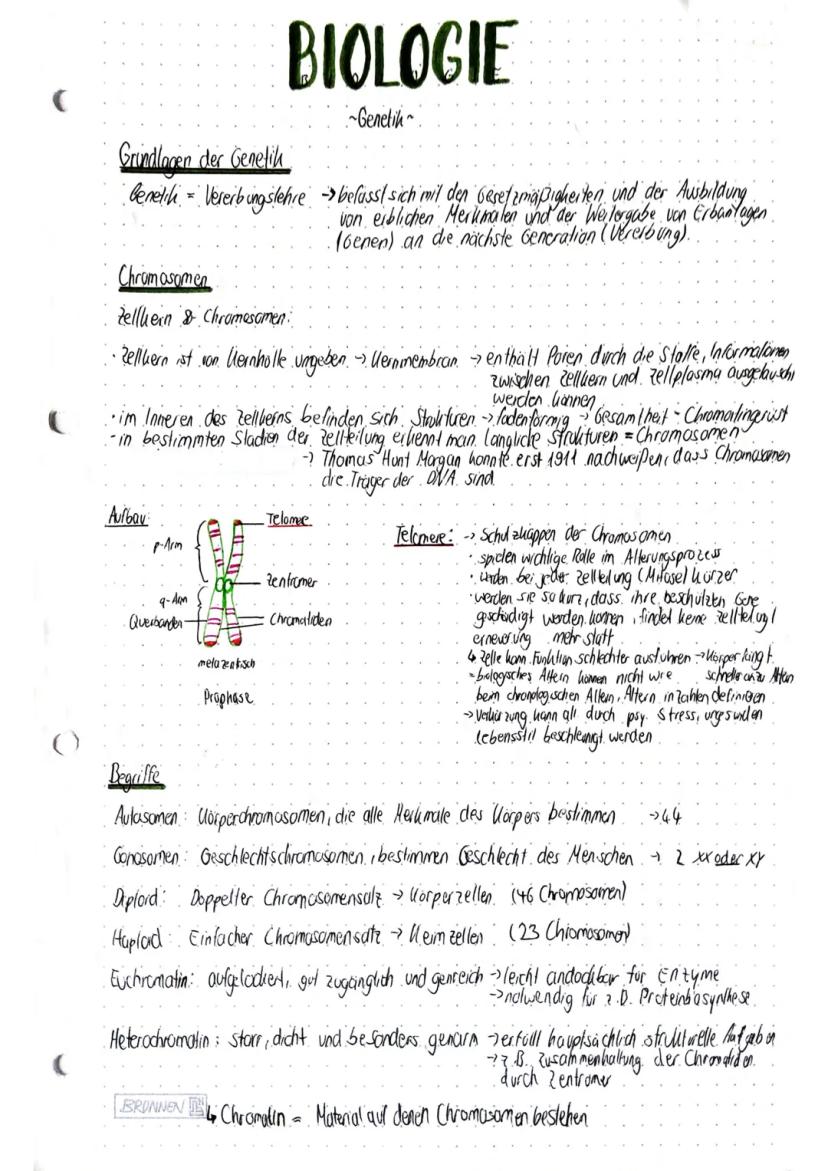 BIOLOGIE
~Genetik~
Grundlagen der Genetik
Genetik = Vererbungslehre → befasst sich mit den Gesetzmäßigkeiten und der Ausbildung
von erblichen Merkmalen und der Weitergabe von Erbanlagen
(Genen) an die nächste Generation (Vererbung).
Chromosomen
Zellkern & Chromosomen:
· Zellkern ist von Kernhülle umgeben → Kernmembran → enthält Poren durch die Stoffe, Informationen
zwischen Zellkern und Zellplasma ausgetauscht
werden können
· im Inneren des Zellkerns befinden sich Strukturen → fadenförmig → Gesamtheit = Chromatingerüst
- in bestimmten Stadien der Zellteilung erkennt man längliche Strukturen = Chromosomen
→ Thomas Hunt Morgan konnte erst 1911 nachweißen, dass Chromosomen
die Träger der DNA sind
Aufbau:
Telomer
p-Arm
Zentromer
q-Arm
Querbanden
Chromatiden
metazentrisch
Prophase
Telomere: → Schutzkappen der Chromosomen
· spielen wichtige Rolle im Alterungsprozess
· werden bei jeder Zellteilung (Mitose) kürzer
· werden sie so kurz, dass ihre beschützten Gene
geschädigt werden können, findet keine Zellteilung /
erneuerung mehr statt
↳ Zelle kann Funktion schlechter ausführen → Körper fängt
schneller an zu Altern
= biologisches Altern können nicht wie
beim chronologischen Altern, Altern in Zahlen definieren
→ Verkürzung kann all durch psy. Stress, ungesunden
lebensstil beschleunigt werden
Begriffe
Autosomen: Körperchromosomen, die alle Merkmale des Körpers bestimmen → 44
Gonosomen: Geschlechtschromosomen, bestimmen Geschlecht des Menschen → 2 XX oder XY
Diploid: Doppelter Chromosomensatz → Körperzellen (46 Chromosomen)
Haploid: Einfacher Chromosomensatz → Keimzellen (23 Chromosomen)
Euchromatin: aufgelockert, gut zugänglich und genreich → leicht andockbar für Enzyme
→ notwendig für z.B. Proteinbiosynthese
Heterochromatin: starr, dicht und besonders genarm → erfüllt hauptsächlich strukturelle Aufgaben
→ z.B. Zusammenhaltung der Chromatiden
durch Zentromer
BRUNNEN
↳ Chromatin = Material auf denen Chromosomen bestehen